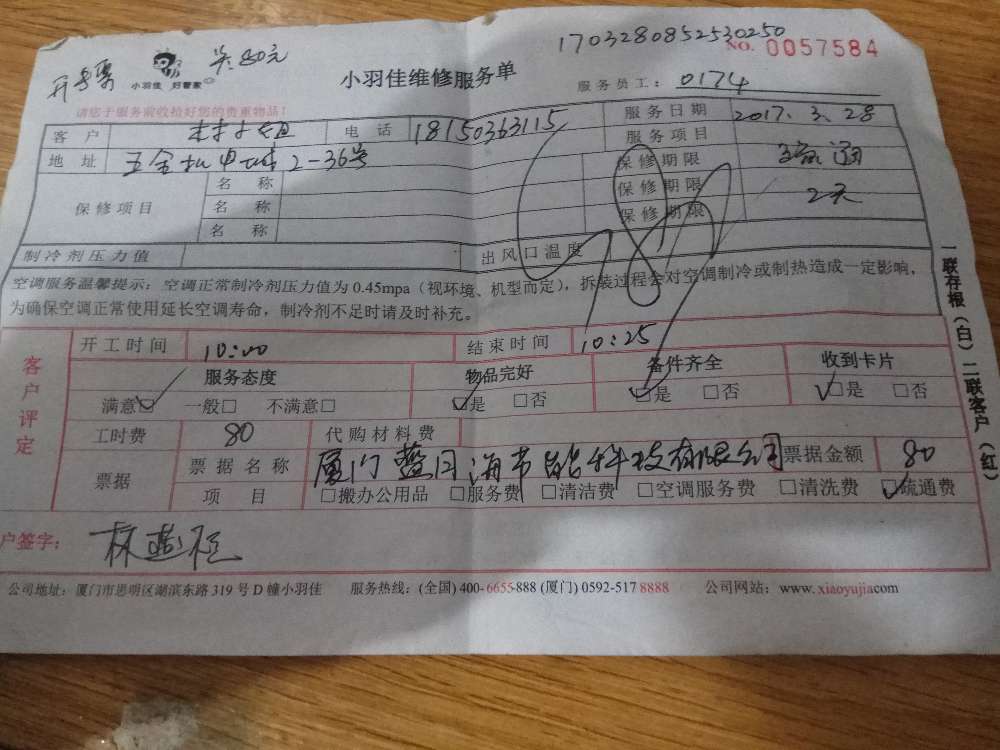 1703280852530250
开手票 吴80元
小羽佳 好管家
小羽佳维修服务单
NO. 0057584
服务员工: 0174
请您于服务前收检好您的贵重物品!
客户 林小姐 电话 18150363115 服务日期 2017.3.28
地址 五金机电城2-36号 服务项目 疏通
保修项目 名称 保修期限 2天
名称 保修期限
名称 保修期限
制冷剂压力值 出风口温度
空调服务温馨提示:空调正常制冷剂压力值为0.45mpa(视环境、机型而定),拆装过程会对空调制冷或制热造成一定影响,
为确保空调正常使用延长空调寿命,制冷剂不足时请及时补充。
一联存根(白)二联客户(红)
客户评定
开工时间 10:00 结束时间 10:25
服务态度 物品完好 备件齐全 收到卡片
满意☑ 一般□ 不满意□ ☑是 □否 ☑是 □否 ☑是 □否
工时费 80 代购材料费
票据 票据名称 厦门蓝月海节能科技有限公司 票据金额 80
项目 □搬办公用品 □服务费 □清洁费 □空调服务费 □清洗费 ☑疏通费
户签字:
公司地址:厦门市思明区湖滨东路319号D幢小羽佳 服务热线:(全国)400-6655-888 (厦门)0592-517 8888 公司网站:www.xiaoyujia.com